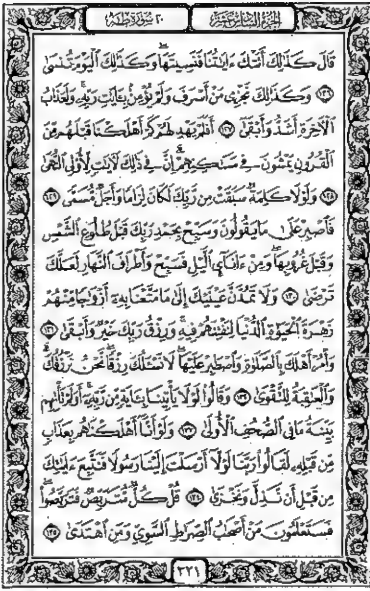 الجزء السادس عشر ٢٠ سورة طه
قَالَ كَذَٰلِكَ أَتَتْكَ ءَايَٰتُنَا فَنَسِيتَهَا ۖ وَكَذَٰلِكَ ٱلْيَوْمَ تُنسَىٰ
﴿١٢٦﴾ وَكَذَٰلِكَ نَجْزِى مَنْ أَسْرَفَ وَلَمْ يُؤْمِنۢ بِـَٔايَٰتِ رَبِّهِۦ ۚ وَلَعَذَابُ
ٱلْءَاخِرَةِ أَشَدُّ وَأَبْقَىٰٓ ﴿١٢٧﴾ أَفَلَمْ يَهْدِ لَهُمْ كَمْ أَهْلَكْنَا قَبْلَهُم مِّنَ
ٱلْقُرُونِ يَمْشُونَ فِى مَسَٰكِنِهِمْ ۗ إِنَّ فِى ذَٰلِكَ لَءَايَٰتٍ لِّأُو۟لِى ٱلنُّهَىٰ
﴿١٢٨﴾ وَلَوْلَا كَلِمَةٌ سَبَقَتْ مِن رَّبِّكَ لَكَانَ لِزَامًا وَأَجَلٌ مُّسَمًّى ﴿١٢٩﴾
فَٱصْبِرْ عَلَىٰ مَا يَقُولُونَ وَسَبِّحْ بِحَمْدِ رَبِّكَ قَبْلَ طُلُوعِ ٱلشَّمْسِ
وَقَبْلَ غُرُوبِهَا ۖ وَمِنْ ءَانَآئِ ٱلَّيْلِ فَسَبِّحْ وَأَطْرَافَ ٱلنَّهَارِ لَعَلَّكَ
تَرْضَىٰ ﴿١٣٠﴾ وَلَا تَمُدَّنَّ عَيْنَيْكَ إِلَىٰ مَا مَتَّعْنَا بِهِۦٓ أَزْوَٰجًا مِّنْهُمْ
زَهْرَةَ ٱلْحَيَوٰةِ ٱلدُّنْيَا لِنَفْتِنَهُمْ فِيهِ ۚ وَرِزْقُ رَبِّكَ خَيْرٌ وَأَبْقَىٰ ﴿١٣١﴾
وَأْمُرْ أَهْلَكَ بِٱلصَّلَوٰةِ وَٱصْطَبِرْ عَلَيْهَا ۖ لَا نَسْـَٔلُكَ رِزْقًا ۖ نَّحْنُ نَرْزُقُكَ ۗ
وَٱلْعَٰقِبَةُ لِلتَّقْوَىٰ ﴿١٣٢﴾ وَقَالُوا۟ لَوْلَا يَأْتِينَا بِـَٔايَةٍ مِّن رَّبِّهِۦٓ ۚ أَوَلَمْ تَأْتِهِم
بَيِّنَةُ مَا فِى ٱلصُّحُفِ ٱلْأُولَىٰ ﴿١٣٣﴾ وَلَوْ أَنَّآ أَهْلَكْنَٰهُم بِعَذَابٍ
مِّن قَبْلِهِۦ لَقَالُوا۟ رَبَّنَا لَوْلَآ أَرْسَلْتَ إِلَيْنَا رَسُولًا فَنَتَّبِعَ ءَايَٰتِكَ
مِن قَبْلِ أَن نَّذِلَّ وَنَخْزَىٰ ﴿١٣٤﴾ قُلْ كُلٌّ مُّتَرَبِّصٌ فَتَرَبَّصُوا۟ ۖ
فَسَتَعْلَمُونَ مَنْ أَصْحَٰبُ ٱلصِّرَٰطِ ٱلسَّوِىِّ وَمَنِ ٱهْتَدَىٰ ﴿١٣٥﴾
٣٢١